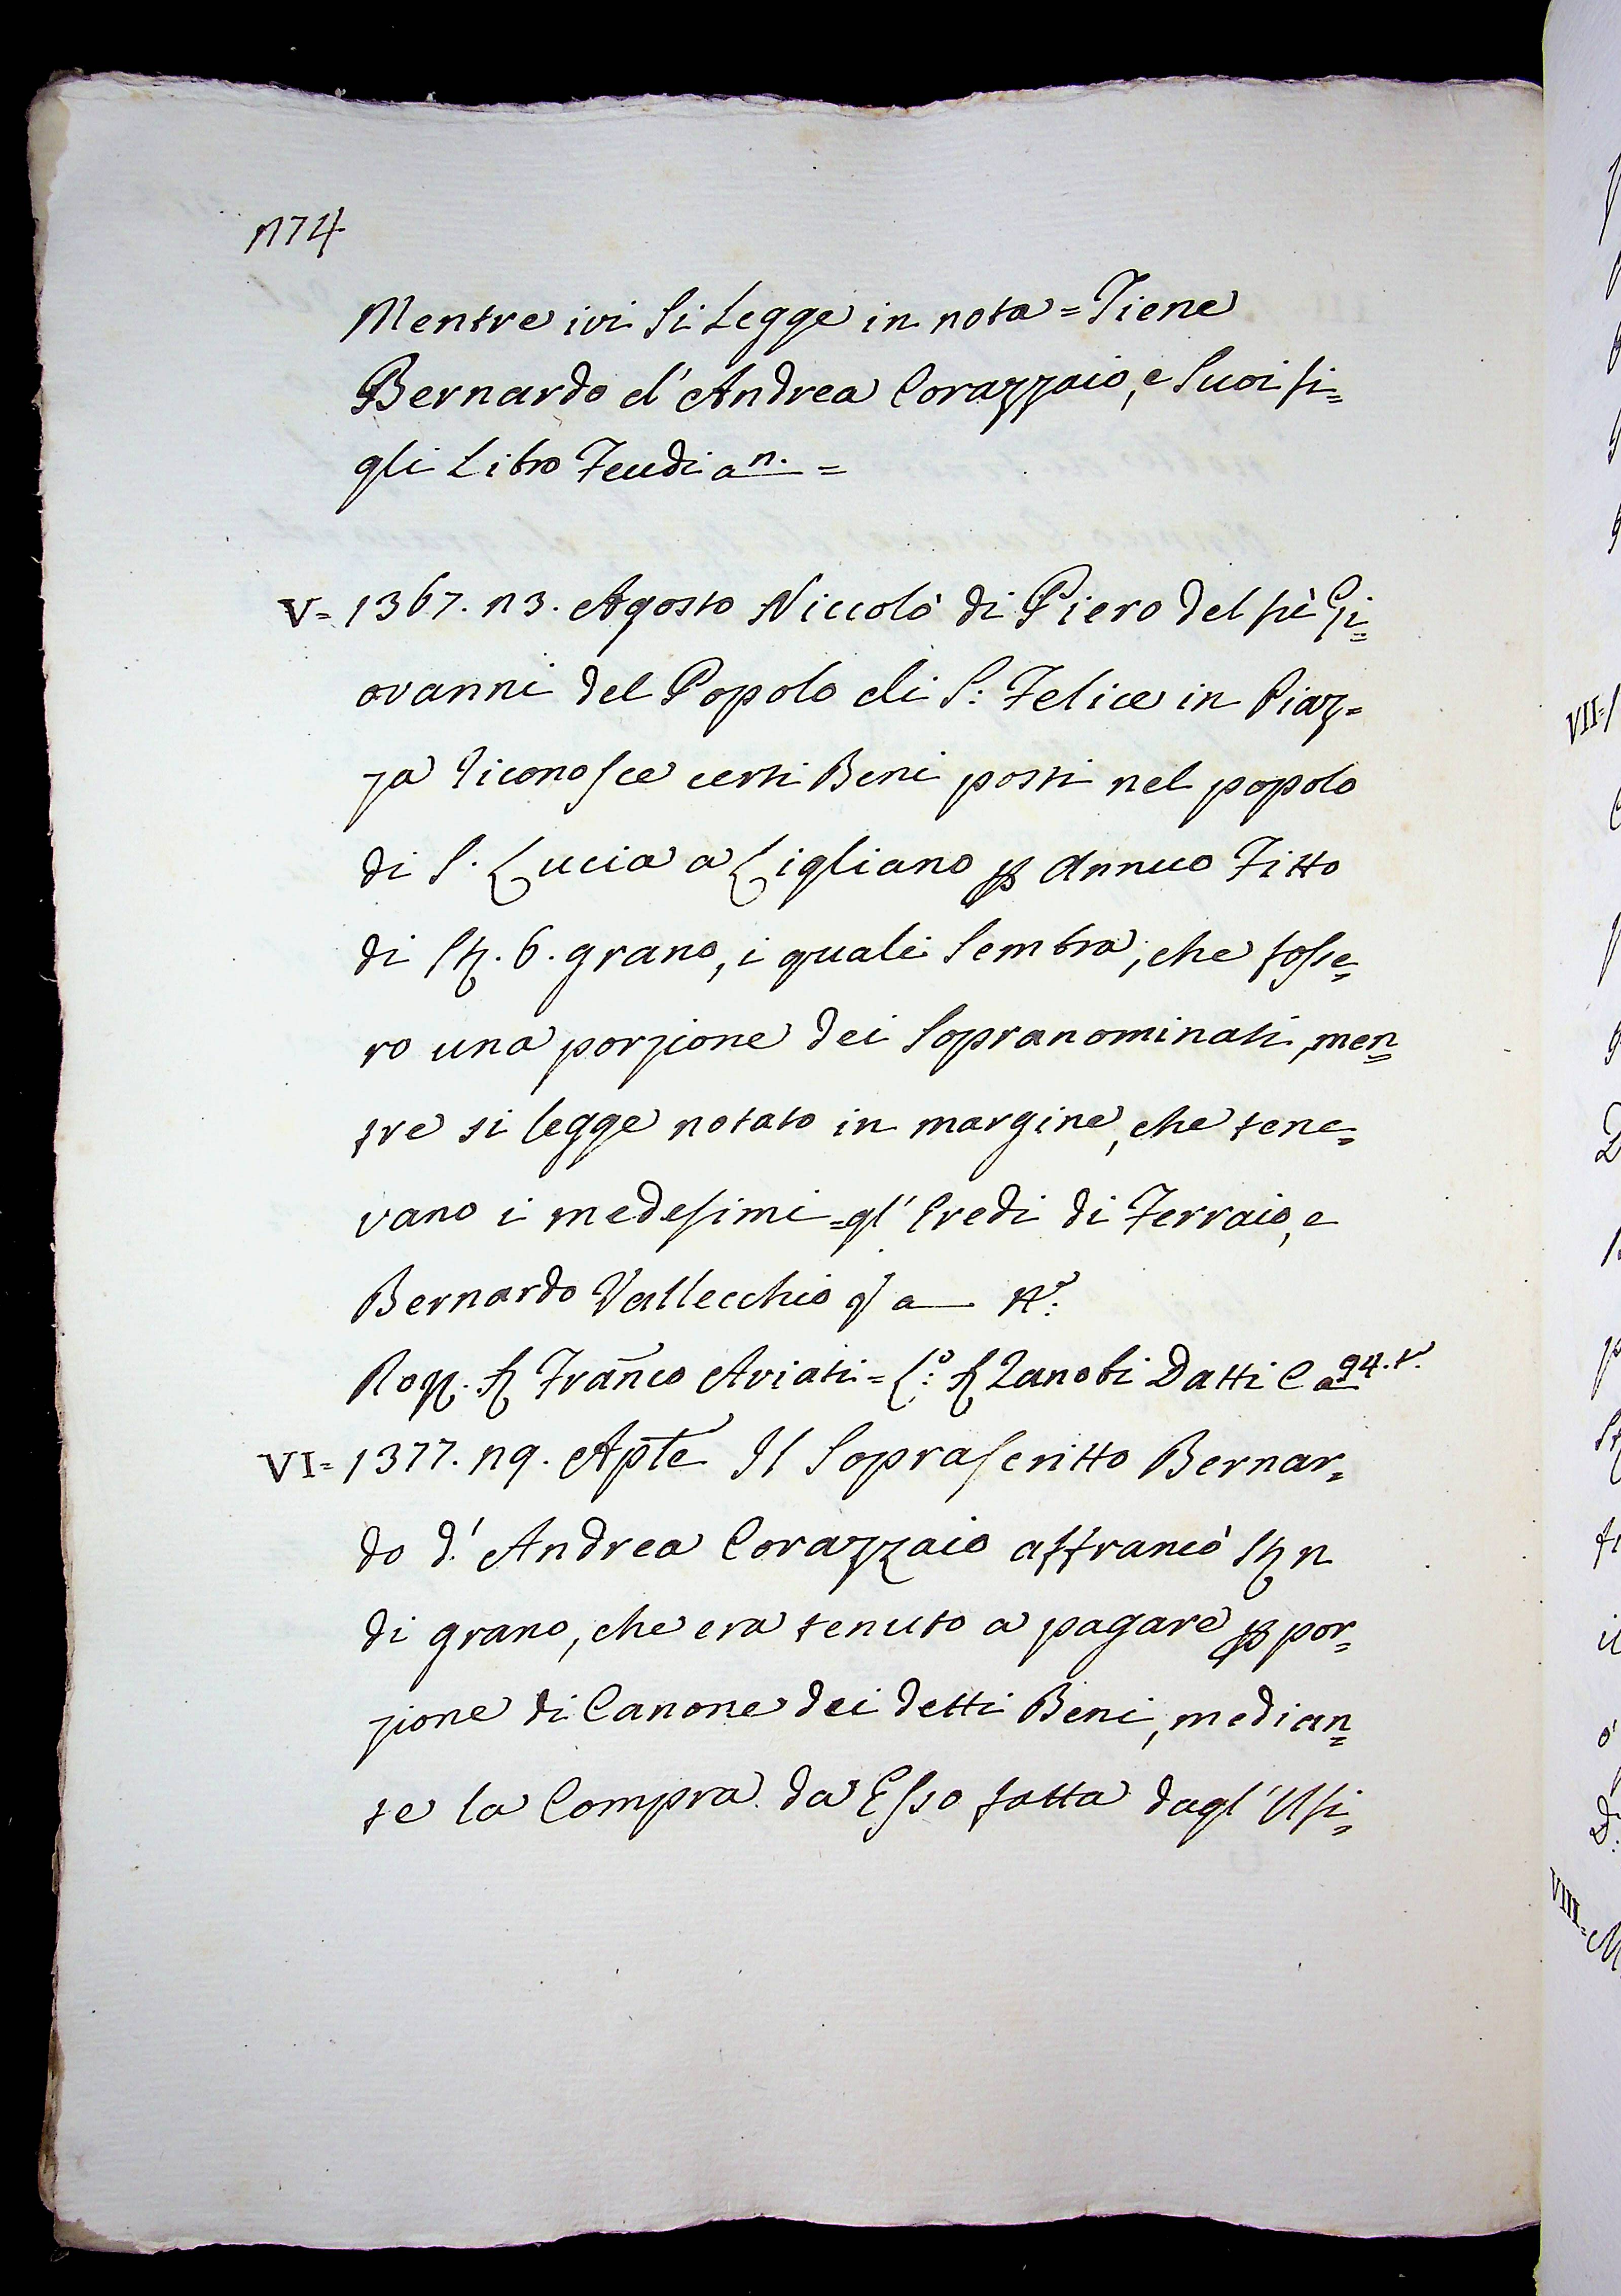 174
Mentre ivi si Legge in nota = Tiene
Bernardo d'Andrea Corazzaio, e Suoi fi=
gli Libro Feudi a 1. =
V = 1367. 13. Agosto Niccolò di Piero del fù Gi=
ovanni del Popolo di S: Felice in Piaz=
za riconosce certi Beni posti nel popolo
di S. Lucia a Ligliano p Annuo Fitto
di Sta. 6. grano, i quali Sembra, che fosse=
ro una porzione dei Sopranominati, men=
tre si legge notato in margine, che tene=
vano i medesimi = gl' Eredi di Ferraio, e
Bernardo Vallecchio
Rog. Franco Aviati = Zanobi Datti C a 94. t.
VI = 1377. 19. Aple Il Soprascritto Bernar=
do d' Andrea Corazzaio affrancò Sta 1
di grano, che era tenuto a pagare p por=
zione di Canone dei detti Beni, median=
te la Compra da Esso fatta dagl' Ufi=
VII =
VIII =